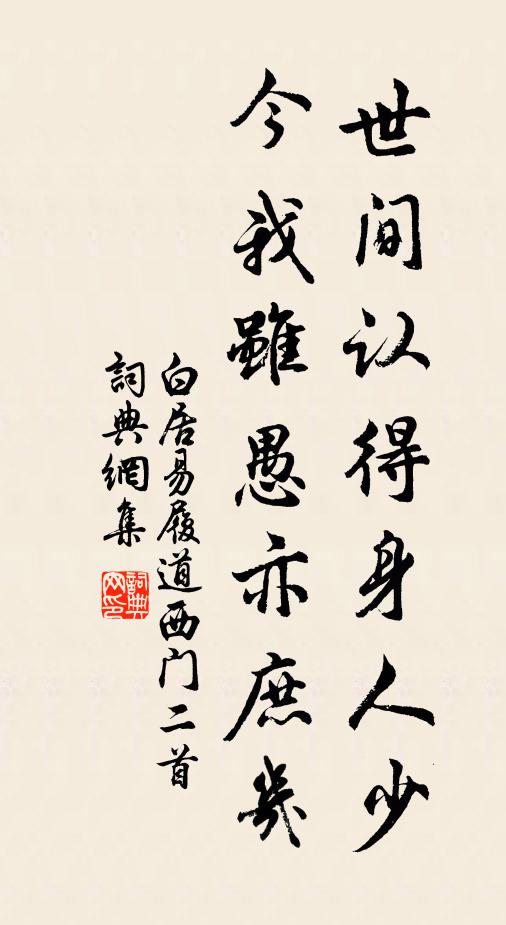 世间认得身人少
今我雖愚亦庶幾
白居易履道西门二首
詞典網集
詞典网印